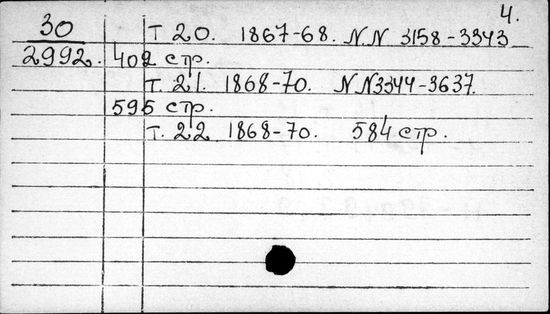 4.
30 Т 20. 1867-68. N.N 3158-3343
2992. 402 стр.
Т. 21. 1868-70. N N3344-3637.
595 стр.
Т. 22 1868-70. 584 стр.